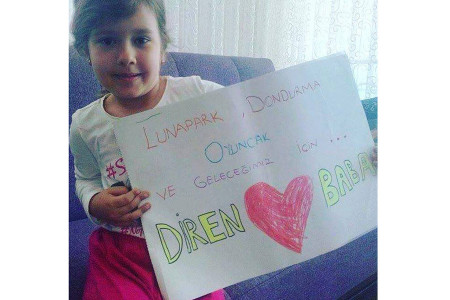 #S
LUNAPARK, DONDURMA
OYUNCAK
VE GELECEĞİMİZ İÇİN ...
DİREN BABA